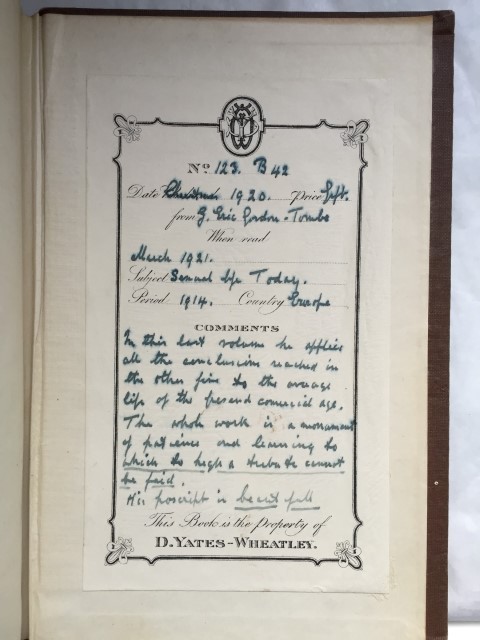 No. 123. B 42
Date Christmas 1920. Price Gift.
from G. Eric Gordon-Tombe
When read
March 1921.
Subject Sexual life Today.
Period 1914. Country Europe
COMMENTS
In this last volume he applies
all the conclusions reached in
the other five to the average
life of the present comercial age.
The whole work is a monument
of patience and learning to
which to high a tribute cannot
be paid.
His poscript is beautifull
This Book is the Property of
D. YATES-WHEATLEY.